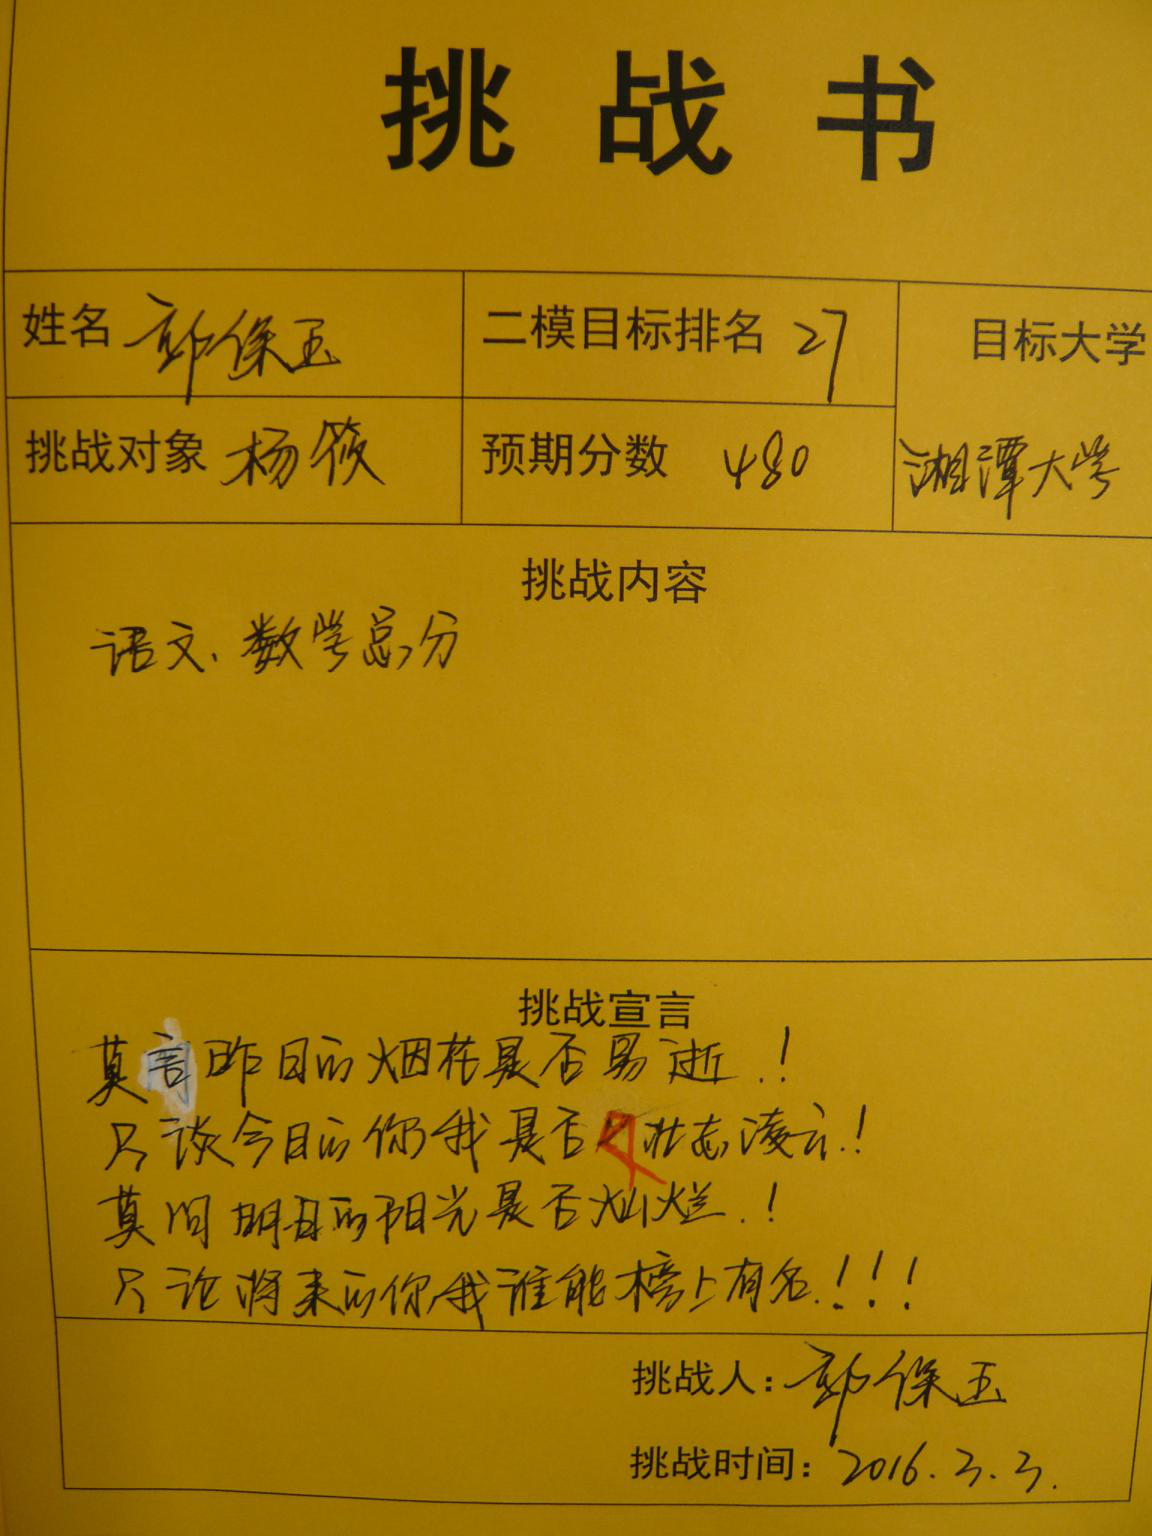 挑战书
姓名 郭保玉
二模目标排名 27
目标大学
挑战对象 杨筱
预期分数 480
湘潭大学
挑战内容
语文、数学总分
挑战宣言
莫言昨日的烟花是否易逝.!
只谈今日的你我是否壮志凌云.!
莫问明日的阳光是否灿烂.!
只论将来的你我谁能榜上有名.!!!
挑战人:郭保玉
挑战时间:2016.3.3.